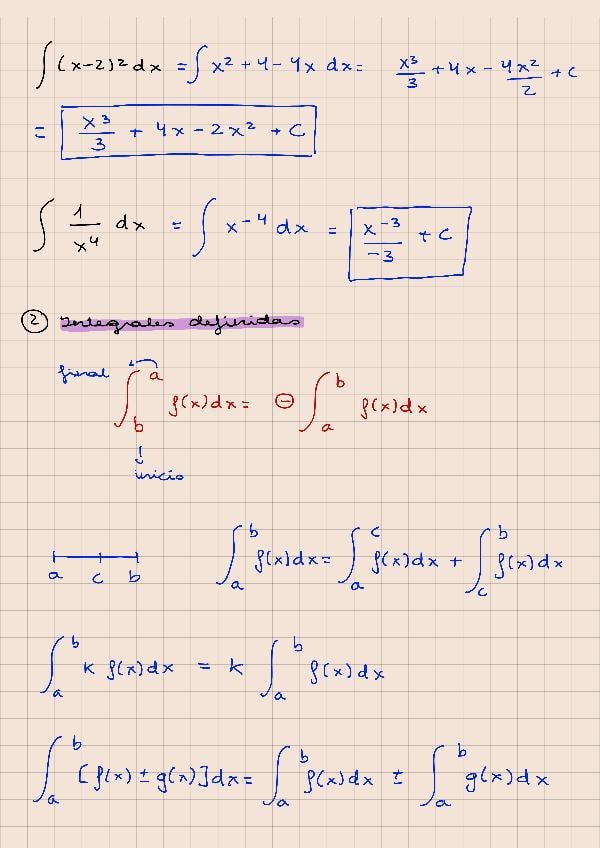 ∫ (x-2)² dx = ∫ x² + 4 - 4x dx = x³/3 + 4x - 4x²/2 + c
= x³/3 + 4x - 2x² + C
∫ 1/x⁴ dx = ∫ x⁻⁴ dx = x⁻³/-3 + c
② Integrales definidas
final ∫_b^a f(x)dx = ⊖ ∫_a^b f(x)dx
↓
inicio
a c b ∫_a^b f(x)dx = ∫_a^c f(x)dx + ∫_c^b f(x)dx
∫_a^b K f(x)dx = K ∫_a^b f(x)dx
∫_a^b [f(x) ± g(x)]dx = ∫_a^b f(x)dx ± ∫_a^b g(x)dx